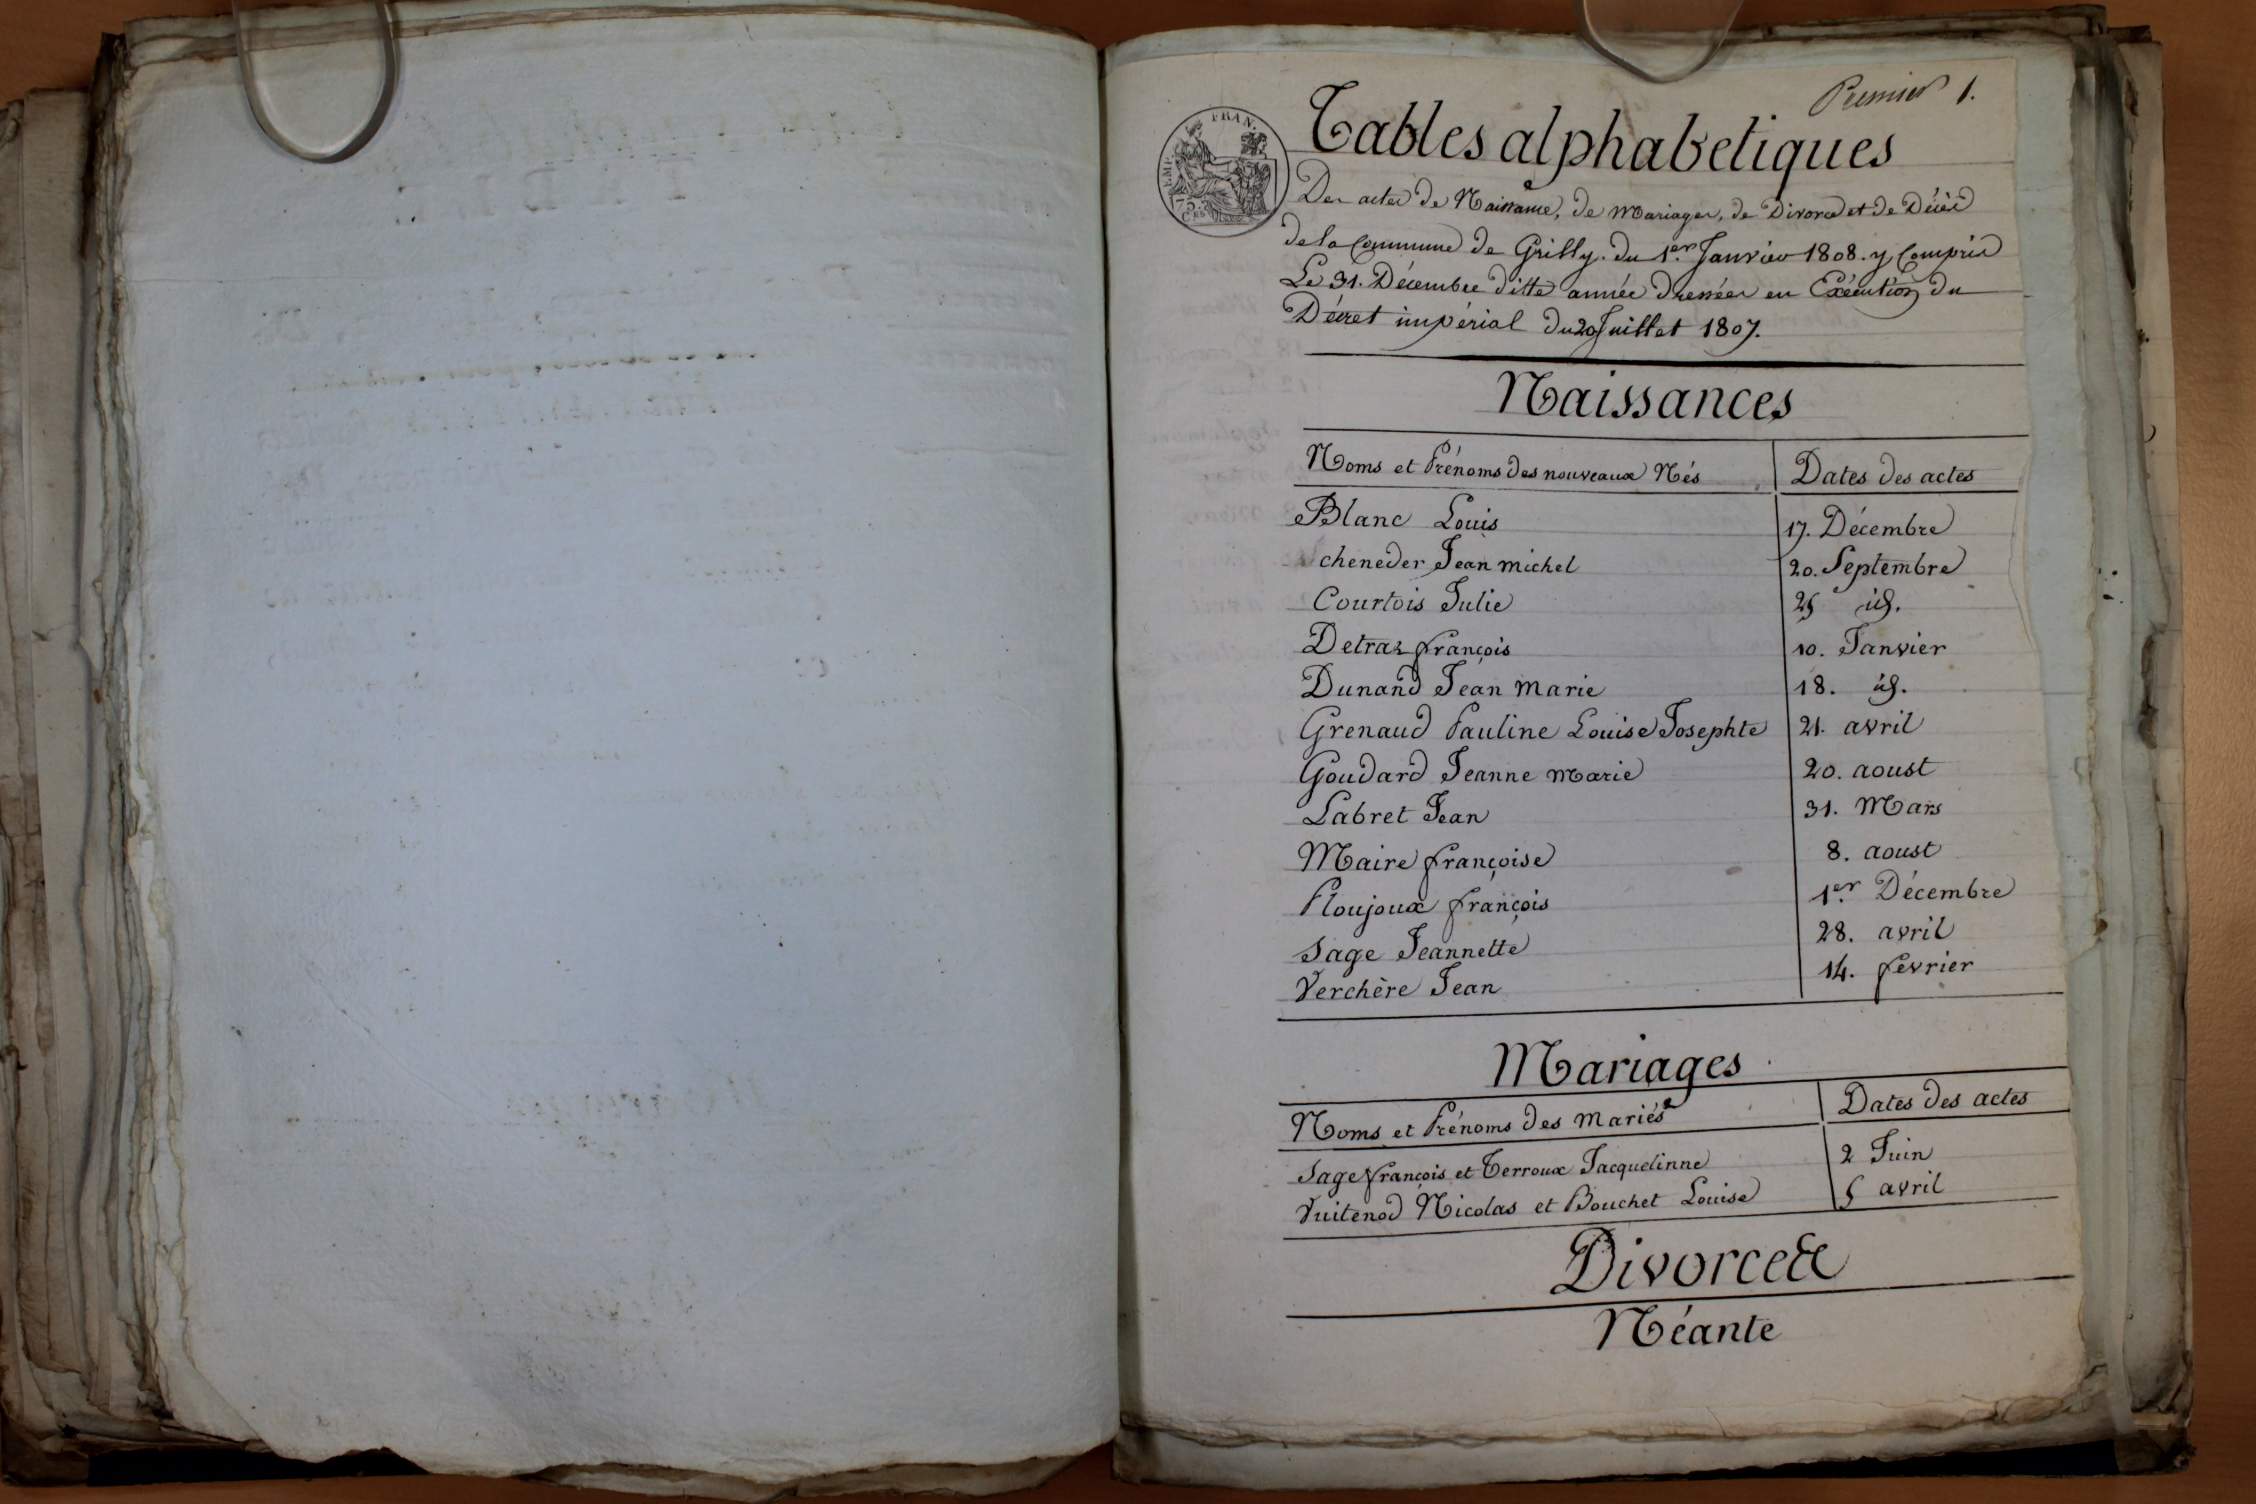 Premier 1.
EMP. FRAN.
75.
Tables alphabetiques
Des actes de Naissance, de mariages, de Divorce et de Décès
de la Commune de Grilly. du 1er. Janvier 1808. y Compris
Le 31. Décembre ditte année dressées en Exécution du
Décret impérial du 20 Juillet 1807.
Naissances
Noms et Prénoms des nouveaux Nés | Dates des actes
Blanc Louis | 17. Décembre
cheneder Jean michel | 20. Septembre
Courtois Julie | 25 id.
Detraz françois | 10. Janvier
Dunand Jean marie | 18. id.
Grenaud Pauline Louise Josephte | 21. avril
Goudard Jeanne marie | 20. aoust
Labret Jean | 31. Mars
Maire françoise | 8. aoust
Ploujoux françois | 1er. Décembre
Sage Jeannette | 28. avril
Verchère Jean | 14. fevrier
Mariages
Noms et Prénoms des mariés | Dates des actes
Sage françois et Terroux Jacquelinne | 2 Juin
Vuitenod Nicolas et Bouchet Louise | 5 avril
Divorce&
Néante